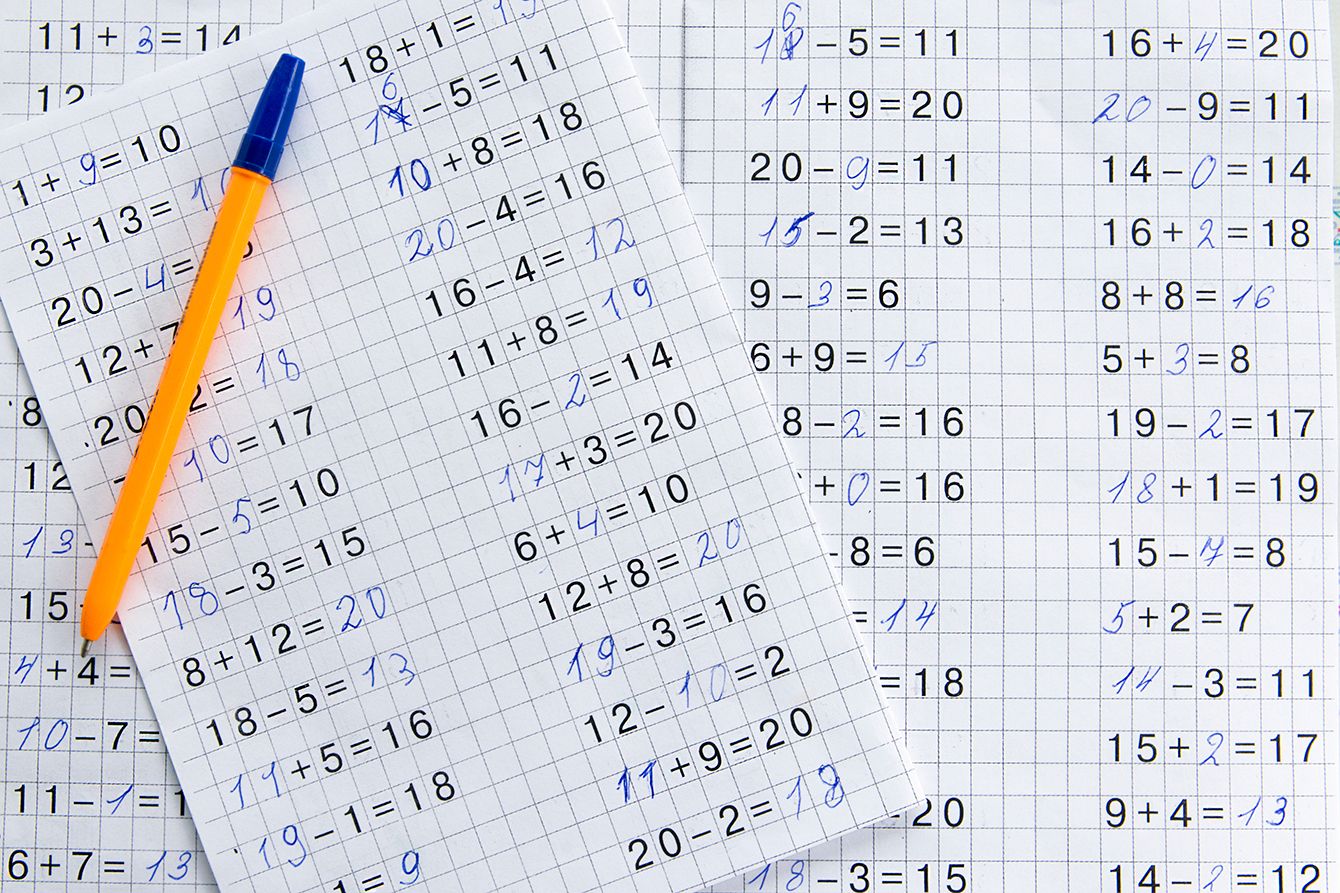 11+3=14
12
8
12
13-
15
4+4=
10-7=
11-1=1
6+7=13
1+9=10
3+13=1
20-4=
12+7 19
20 2=18
10=17
15-5=10
18-3=15
8+12=20
18-5=13
11+5=16
19-1=18
1=9
18+1=19
16-5=11
10+8=18
20-4=16
16-4=12
11+8=19
16-2=14
17+3=20
6+4=10
12+8=20
19-3=16
12-10=2
11+9=20
20-2=18
16-5=11
11+9=20
20-9=11
15-2=13
9-3=6
6+9=15
8-2=16
+0=16
-8=6
=14
=18
20
18-3=15
16+4=20
20-9=11
14-0=14
16+2=18
8+8=16
5+3=8
19-2=17
18+1=19
15-7=8
5+2=7
14-3=11
15+2=17
9+4=13
14-2=12